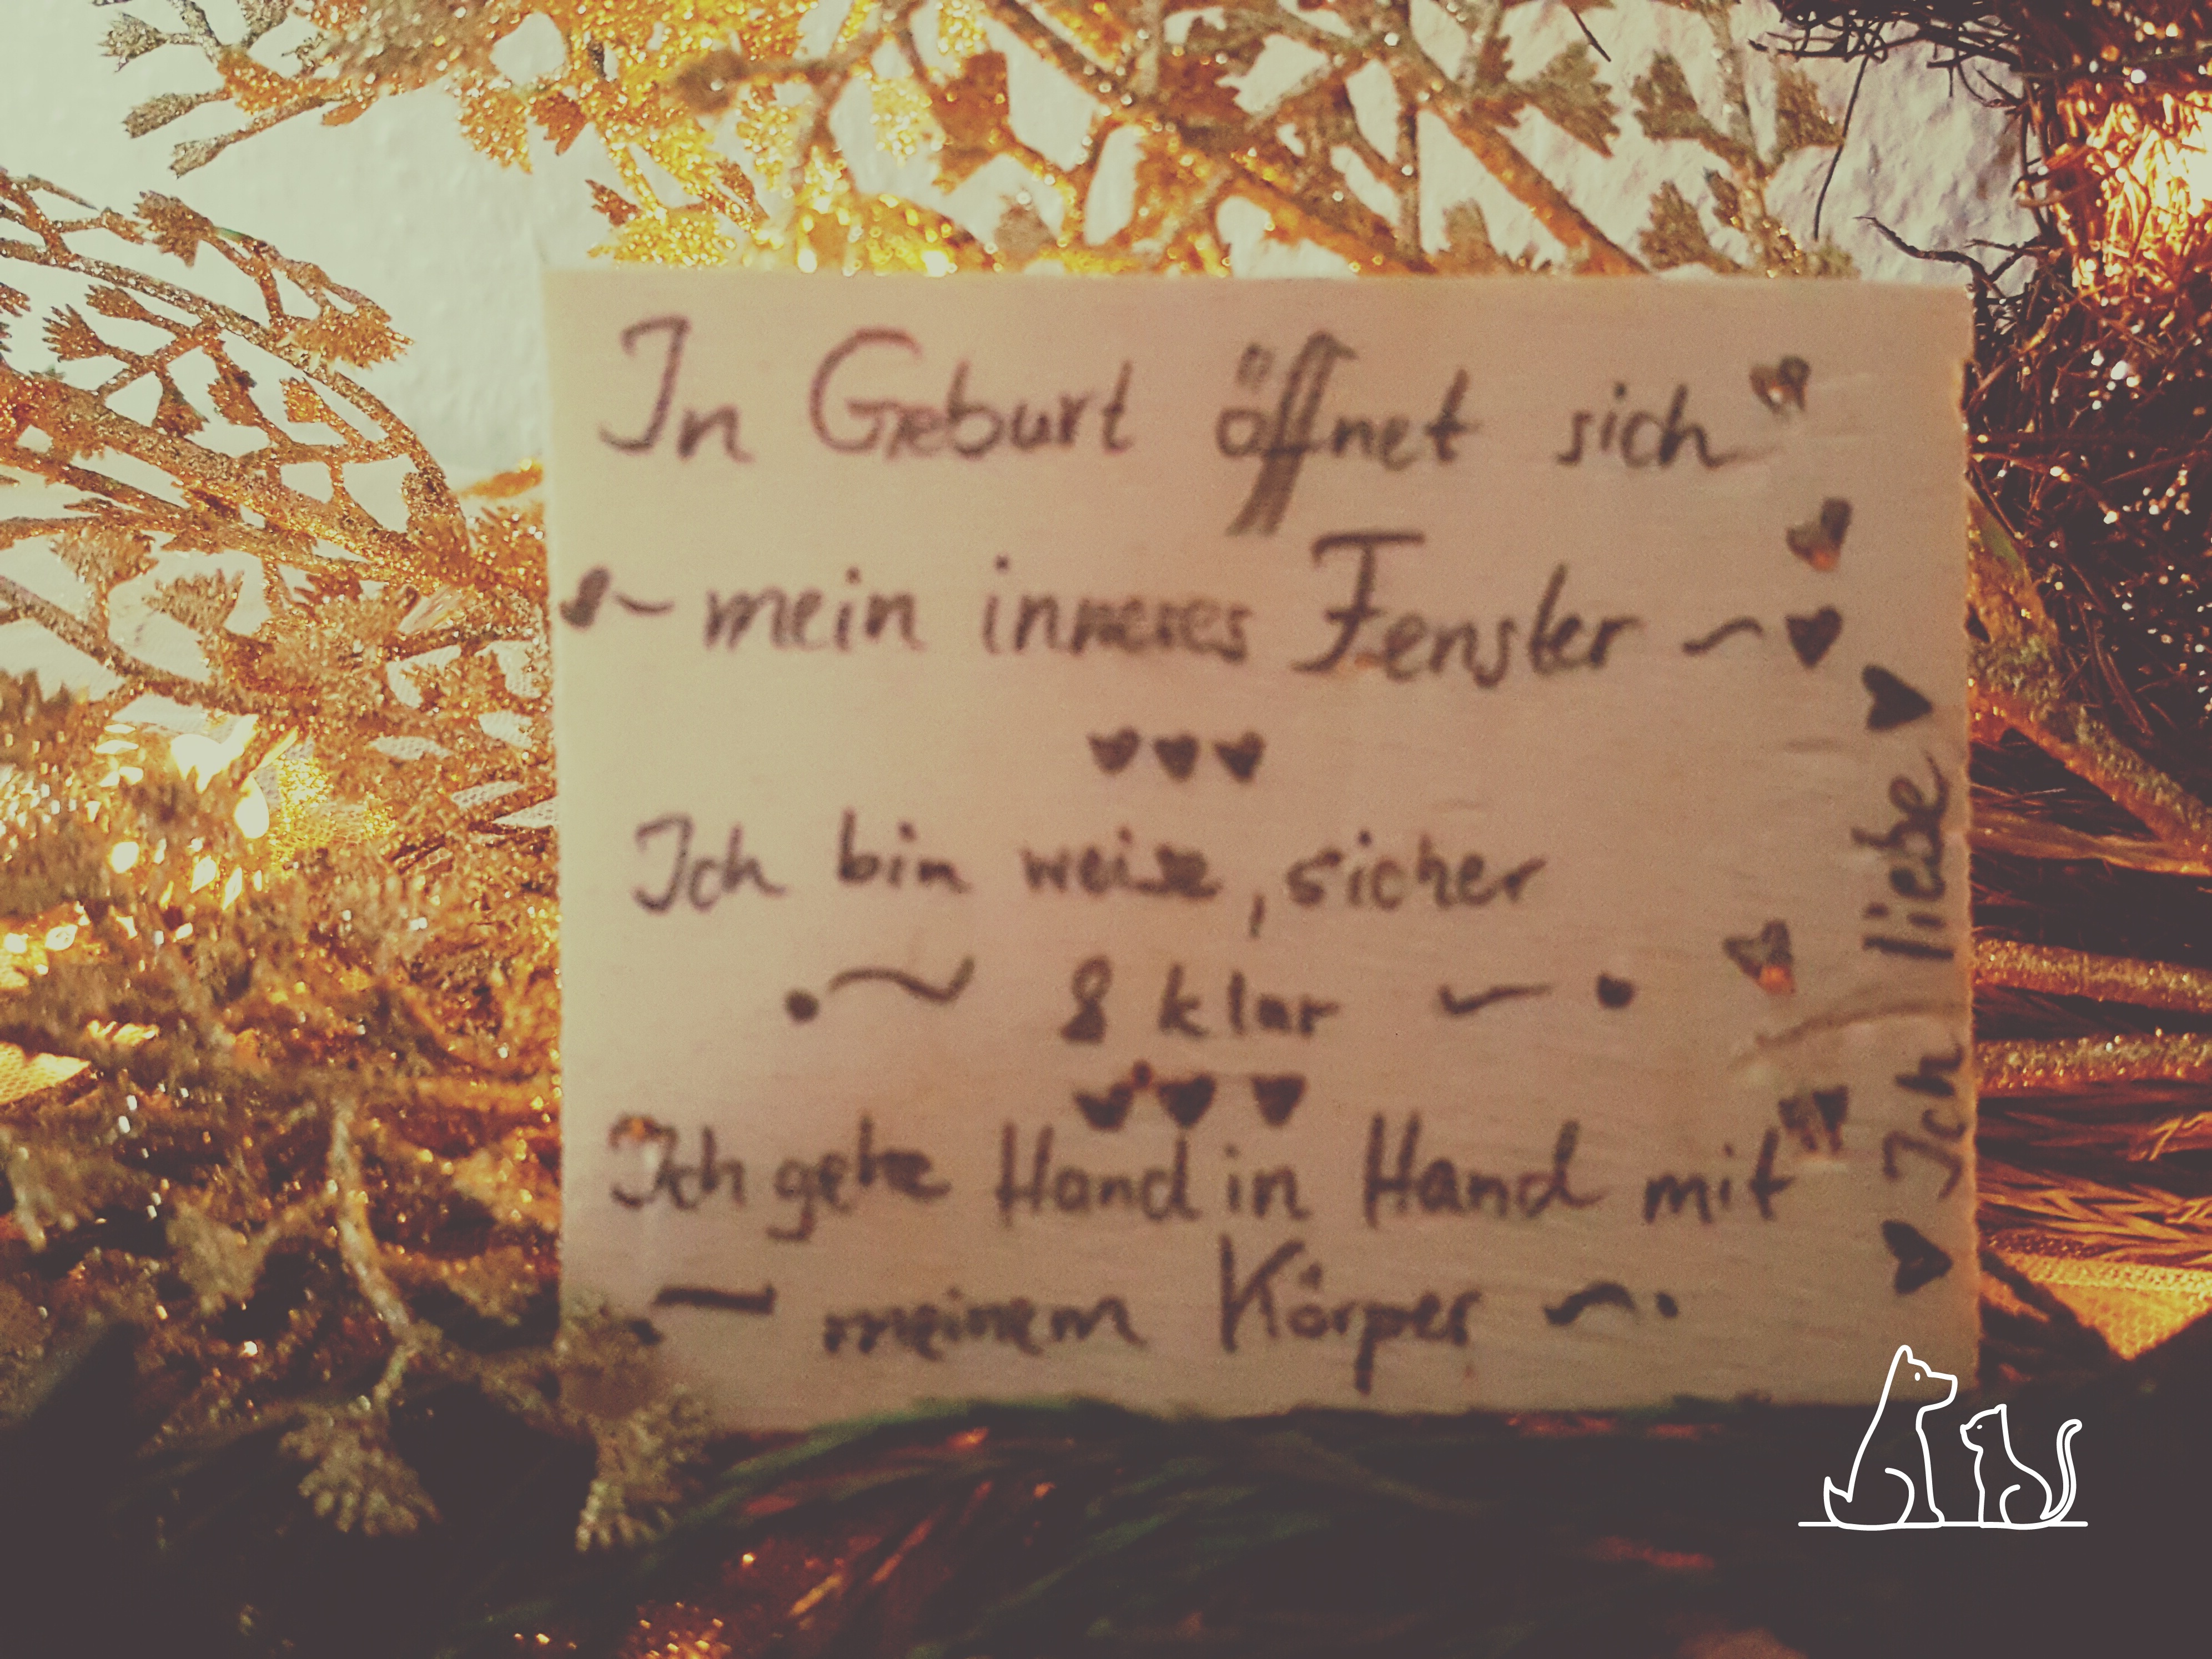 In Geburt öffnet sich
mein inneres Fenster
Ich bin weise, sicher
& klar
Ich gehe Hand in Hand mit
meinem Körper
Ich liebe